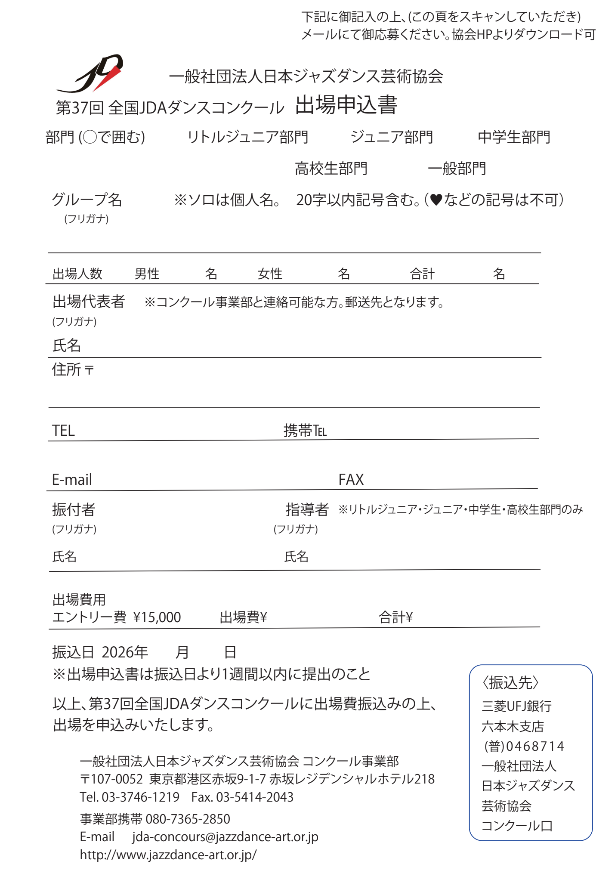 下記に御記入の上、(この頁をスキャンしていただき)
メールにて御応募ください。協会HPよりダウンロード可
一般社団法人日本ジャズダンス芸術協会
第37回 全国JDAダンスコンクール 出場申込書
部門 (○で囲む) リトルジュニア部門 ジュニア部門 中学生部門
高校生部門 一般部門
グループ名 ※ソロは個人名。 20字以内記号含む。(♥などの記号は不可)
(フリガナ)
出場人数 男性 名 女性 名 合計 名
出場代表者 ※コンクール事業部と連絡可能な方。郵送先となります。
(フリガナ)
氏名
住所 〒
TEL 携帯TEL
E-mail FAX
振付者 指導者 ※リトルジュニア・ジュニア・中学生・高校生部門のみ
(フリガナ) (フリガナ)
氏名 氏名
出場費用
エントリー費 ¥15,000 出場費¥ 合計¥
振込日 2026年 月 日
※出場申込書は振込日より1週間以内に提出のこと
以上、第37回全国JDAダンスコンクールに出場費振込みの上、
出場を申込みいたします。
一般社団法人日本ジャズダンス芸術協会 コンクール事業部
〒107-0052 東京都港区赤坂9-1-7 赤坂レジデンシャルホテル218
Tel. 03-3746-1219 Fax. 03-5414-2043
事業部携帯 080-7365-2850
E-mail jda-concours@jazzdance-art.or.jp
http://www.jazzdance-art.or.jp/
〈振込先〉
三菱UFJ銀行
六本木支店
(普)0468714
一般社団法人
日本ジャズダンス
芸術協会
コンクール口